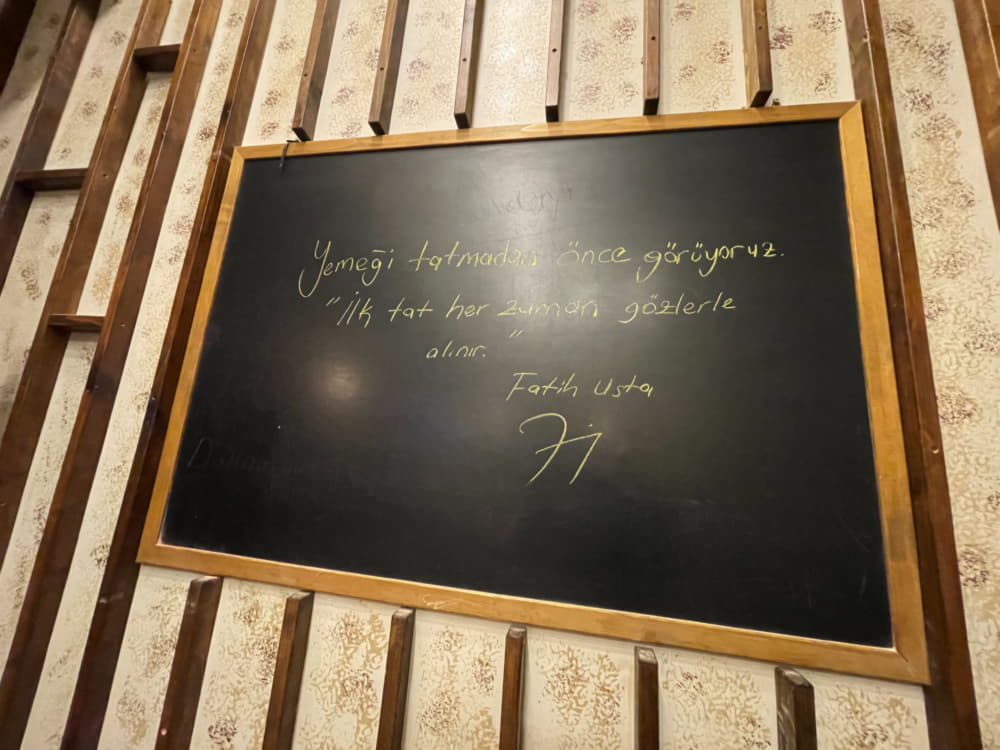 Yemeği tatmadan önce görüyoruz.
"İlk tat her zaman gözlerle
alınır. "
Fatih Usta